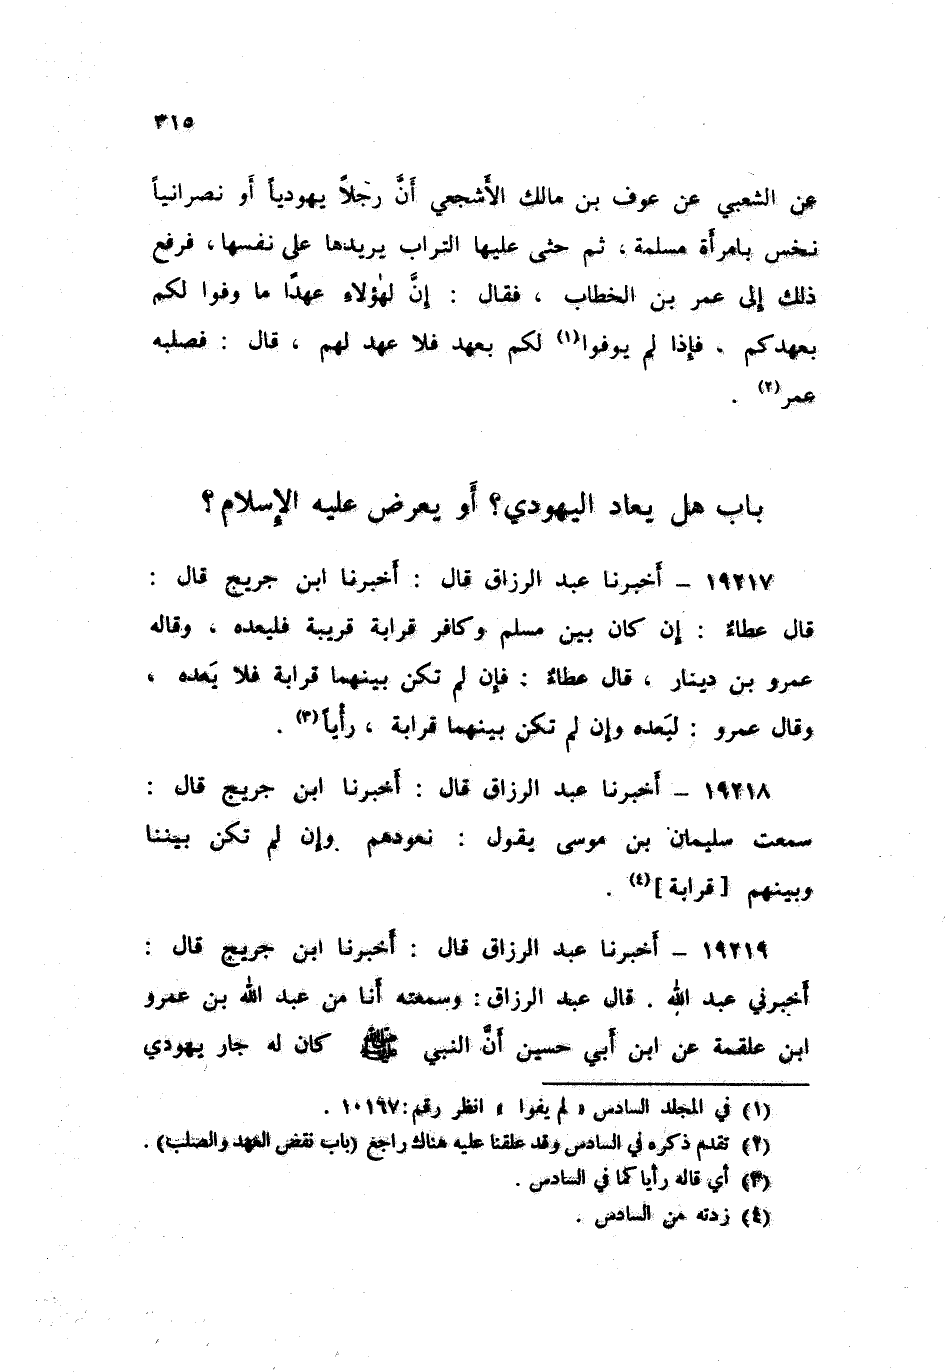 ٣١٥
عن الشعبي عن عوف بن مالك الأشجعي أنَّ رجلاً يهودياً أو نصرانياً
نخس بامرأة مسلمة ، ثم حثى عليها التراب يريدها على نفسها ، فرفع
ذلك إلى عمر بن الخطاب ، فقال : إنَّ لهٰؤلاء عهدًا ما وفوا لكم
بعهدكم ، فإذا لم يوفوا(١) لكم بعهد فلا عهد لهم ، قال : فصلبه
عمر(٢) .
باب هل يعاد اليهودي؟ أو يعرض عليه الإسلام؟
١٩٢١٧ – أخبرنا عبد الرزاق قال : أخبرنا ابن جريج قال :
قال عطاءٌ : إن كان بين مسلم وكافر قرابة قريبة فليعده ، وقاله
عمرو بن دينار ، قال عطاءٌ : فإن لم تكن بينهما قرابة فلا يَعده ،
وقال عمرو : ليَعده وإن لم تكن بينهما قرابة ، رأياً(٣) .
١٩٢١٨ – أخبرنا عبد الرزاق قال : أخبرنا ابن جريج قال :
سمعت سليمان بن موسى يقول : نعودهم وإن لم تكن بيننا
وبينهم [ قرابة ](٤) .
١٩٢١٩ – أخبرنا عبد الرزاق قال : أخبرنا ابن جريج قال :
أخبرني عبد الله . قال عبد الرزاق : وسمعته أنا من عبد الله بن عمرو
ابن علقمة عن ابن أبي حسين أنَّ النبي ﷺ كان له جار يهودي
(١) في المجلد السادس « لم يفوا » انظر رقم : ١٠١٩٧ .
(٢) تقدم ذكره في السادس وقد علقنا عليه هناك راجع (باب نقض العهد والصلب) .
(٣) أي قاله رأيا كما في السادس .
(٤) زدته من السادس .